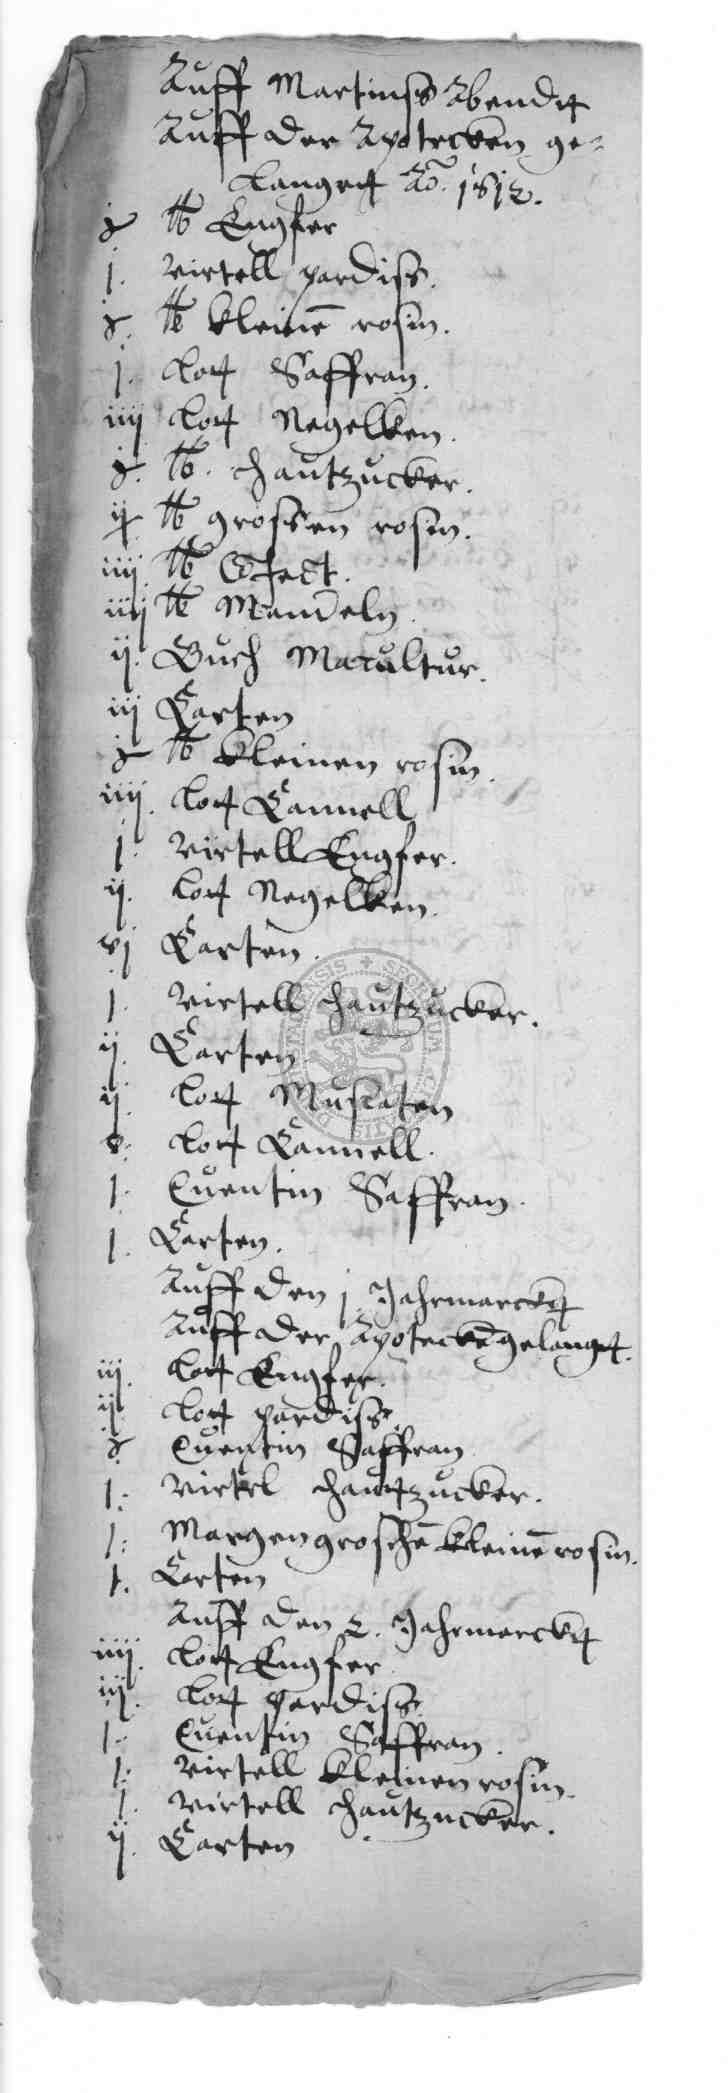 Auff Martinss Abendt
Auff der Apotecken ge-
langett Ao. 1612.
lb Engfer
j. virtell pardiss.
lb kleine rosin.
j. Lott Saffran.
iiij Lott Negelken.
lb. Hautzucker.
ij lb grossen rosin.
iiij lb Cofect.
iiij lb Mandeln.
ij. Buch Macultur.
iij Carten
lb kleinen rosin.
iiij. Lott Cannell
j. virtell Engfer.
ij. Lott Negelken.
vj Carten.
j. virtell Hautzucker.
ij. Carten
ij. Lott Muscaten
v. Lott Cannell.
j. Quentin Saffran.
j. Carten.
Auff den j. Jahrmarckt
Auff der Apotecke gelanget.
iij. Lott Engfer.
ij Lott pardiss.
Quentin Saffran
j. virtel Hautzucker.
j. Margengrosche kleine rosin.
j. Carten
Auff den 2. Jahrmarckt
iiij. Lott Engfer.
iij. Lott pardiss.
j. Quentin Saffran.
j. virtell kleinen rosin.
j. virtell Hautzucker.
ij. Carten